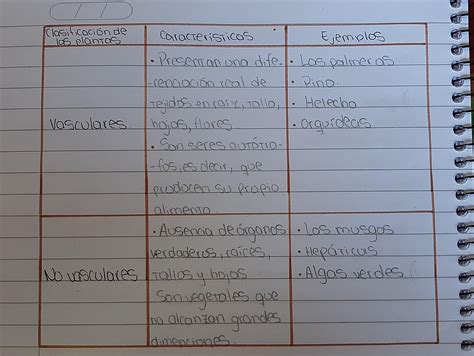 Clasificación de
las plantas
Características
Ejemplos
Vasculares
• Presentan una dife-
renciación real de
tejidos en raíz, tallo,
hojas, flores.
• Son seres autótro-
-fos, es decir, que
producen su propio
alimento.
• Las palmeras
• Pino.
• Helecho
• orquídeas.
No vasculares
• Ausencia de órganos
verdaderos, raíces,
tallos y hojas
Son vegetales que
no alcanzan grandes
dimenciones.
• Los musgos
• Hepáticas
• Algas verdes.